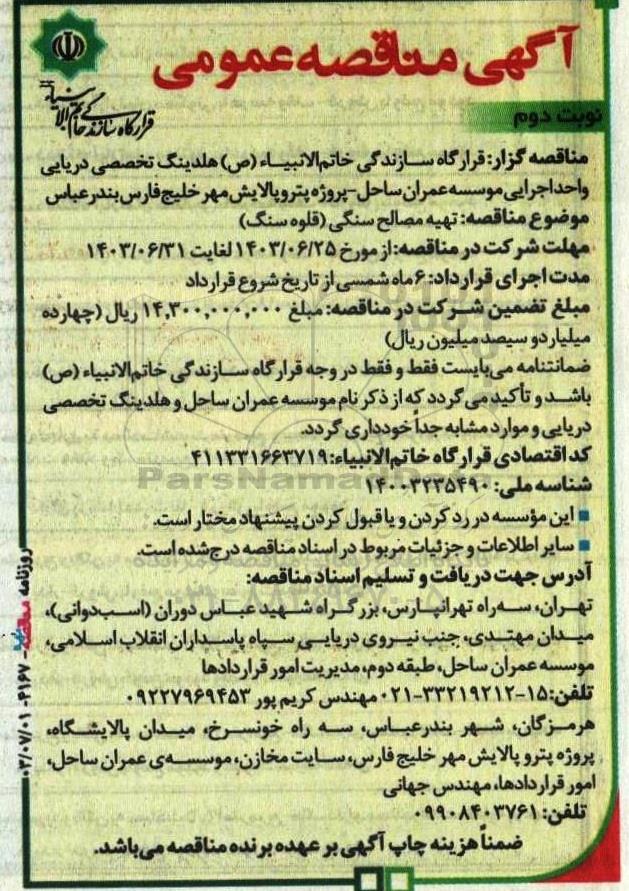 آگهی مناقصه عمومی
قرارگاه سازندگی خاتم الانبیاء
نوبت دوم
مناقصه گزار: قرارگاه سازندگی خاتم‌الانبیاء (ص) هلدینگ تخصصی دریایی
واحد اجرایی موسسه عمران ساحل-پروژه پتروپالایش مهر خلیج‌فارس بندرعباس
موضوع مناقصه: تهیه مصالح سنگی (قلوه سنگ)
مهلت شرکت در مناقصه: از مورخ ۱۴۰۳/۰۶/۲۵ لغایت ۱۴۰۳/۰۶/۳۱
مدت اجرای قرارداد: ۶ ماه شمسی از تاریخ شروع قرارداد
مبلغ تضمین شرکت در مناقصه: مبلغ ۱۴,۳۰۰,۰۰۰,۰۰۰ ریال (چهارده
میلیارد و سیصد میلیون ریال)
ضمانتنامه می‌بایست فقط و فقط در وجه قرارگاه سازندگی خاتم‌الانبیاء (ص)
باشد و تأکید می‌گردد که از ذکر نام موسسه عمران ساحل و هلدینگ تخصصی
دریایی و موارد مشابه جداً خودداری گردد.
کد اقتصادی قرارگاه خاتم‌الانبیاء: ۴۱۱۳۳۱۶۶۳۷۱۹
شناسه ملی: ۱۴۰۰۳۲۳۵۴۹۰
ParsNamadData
■ این مؤسسه در رد کردن و یا قبول کردن پیشنهاد مختار است.
■ سایر اطلاعات و جزئیات مربوط در اسناد مناقصه درج شده است.
آدرس جهت دریافت و تسلیم اسناد مناقصه:
تهران، سه‌راه تهرانپارس، بزرگراه شهید عباس دوران (اسب‌دوانی)،
میدان مهتدی، جنب نیروی دریایی سپاه پاسداران انقلاب اسلامی،
موسسه عمران ساحل، طبقه دوم، مدیریت امور قراردادها
تلفن: ۱۵-۳۳۲۱۹۲۱۲-۰۲۱ مهندس کریم پور ۰۹۲۲۷۹۶۹۴۵۳
هرمزگان، شهر بندرعباس، سه راه خونسرخ، میدان پالایشگاه،
پروژه پترو پالایش مهر خلیج فارس، سایت مخازن، موسسه‌ی عمران ساحل،
امور قراردادها، مهندس جهانی
تلفن: ۰۹۹۰۸۴۰۳۷۶۱
ضمناً هزینه چاپ آگهی بر عهده برنده مناقصه می‌باشد.
روزنامه مناقصه - ۴۱۶۷ - ۰۳/۰۷/۰۱